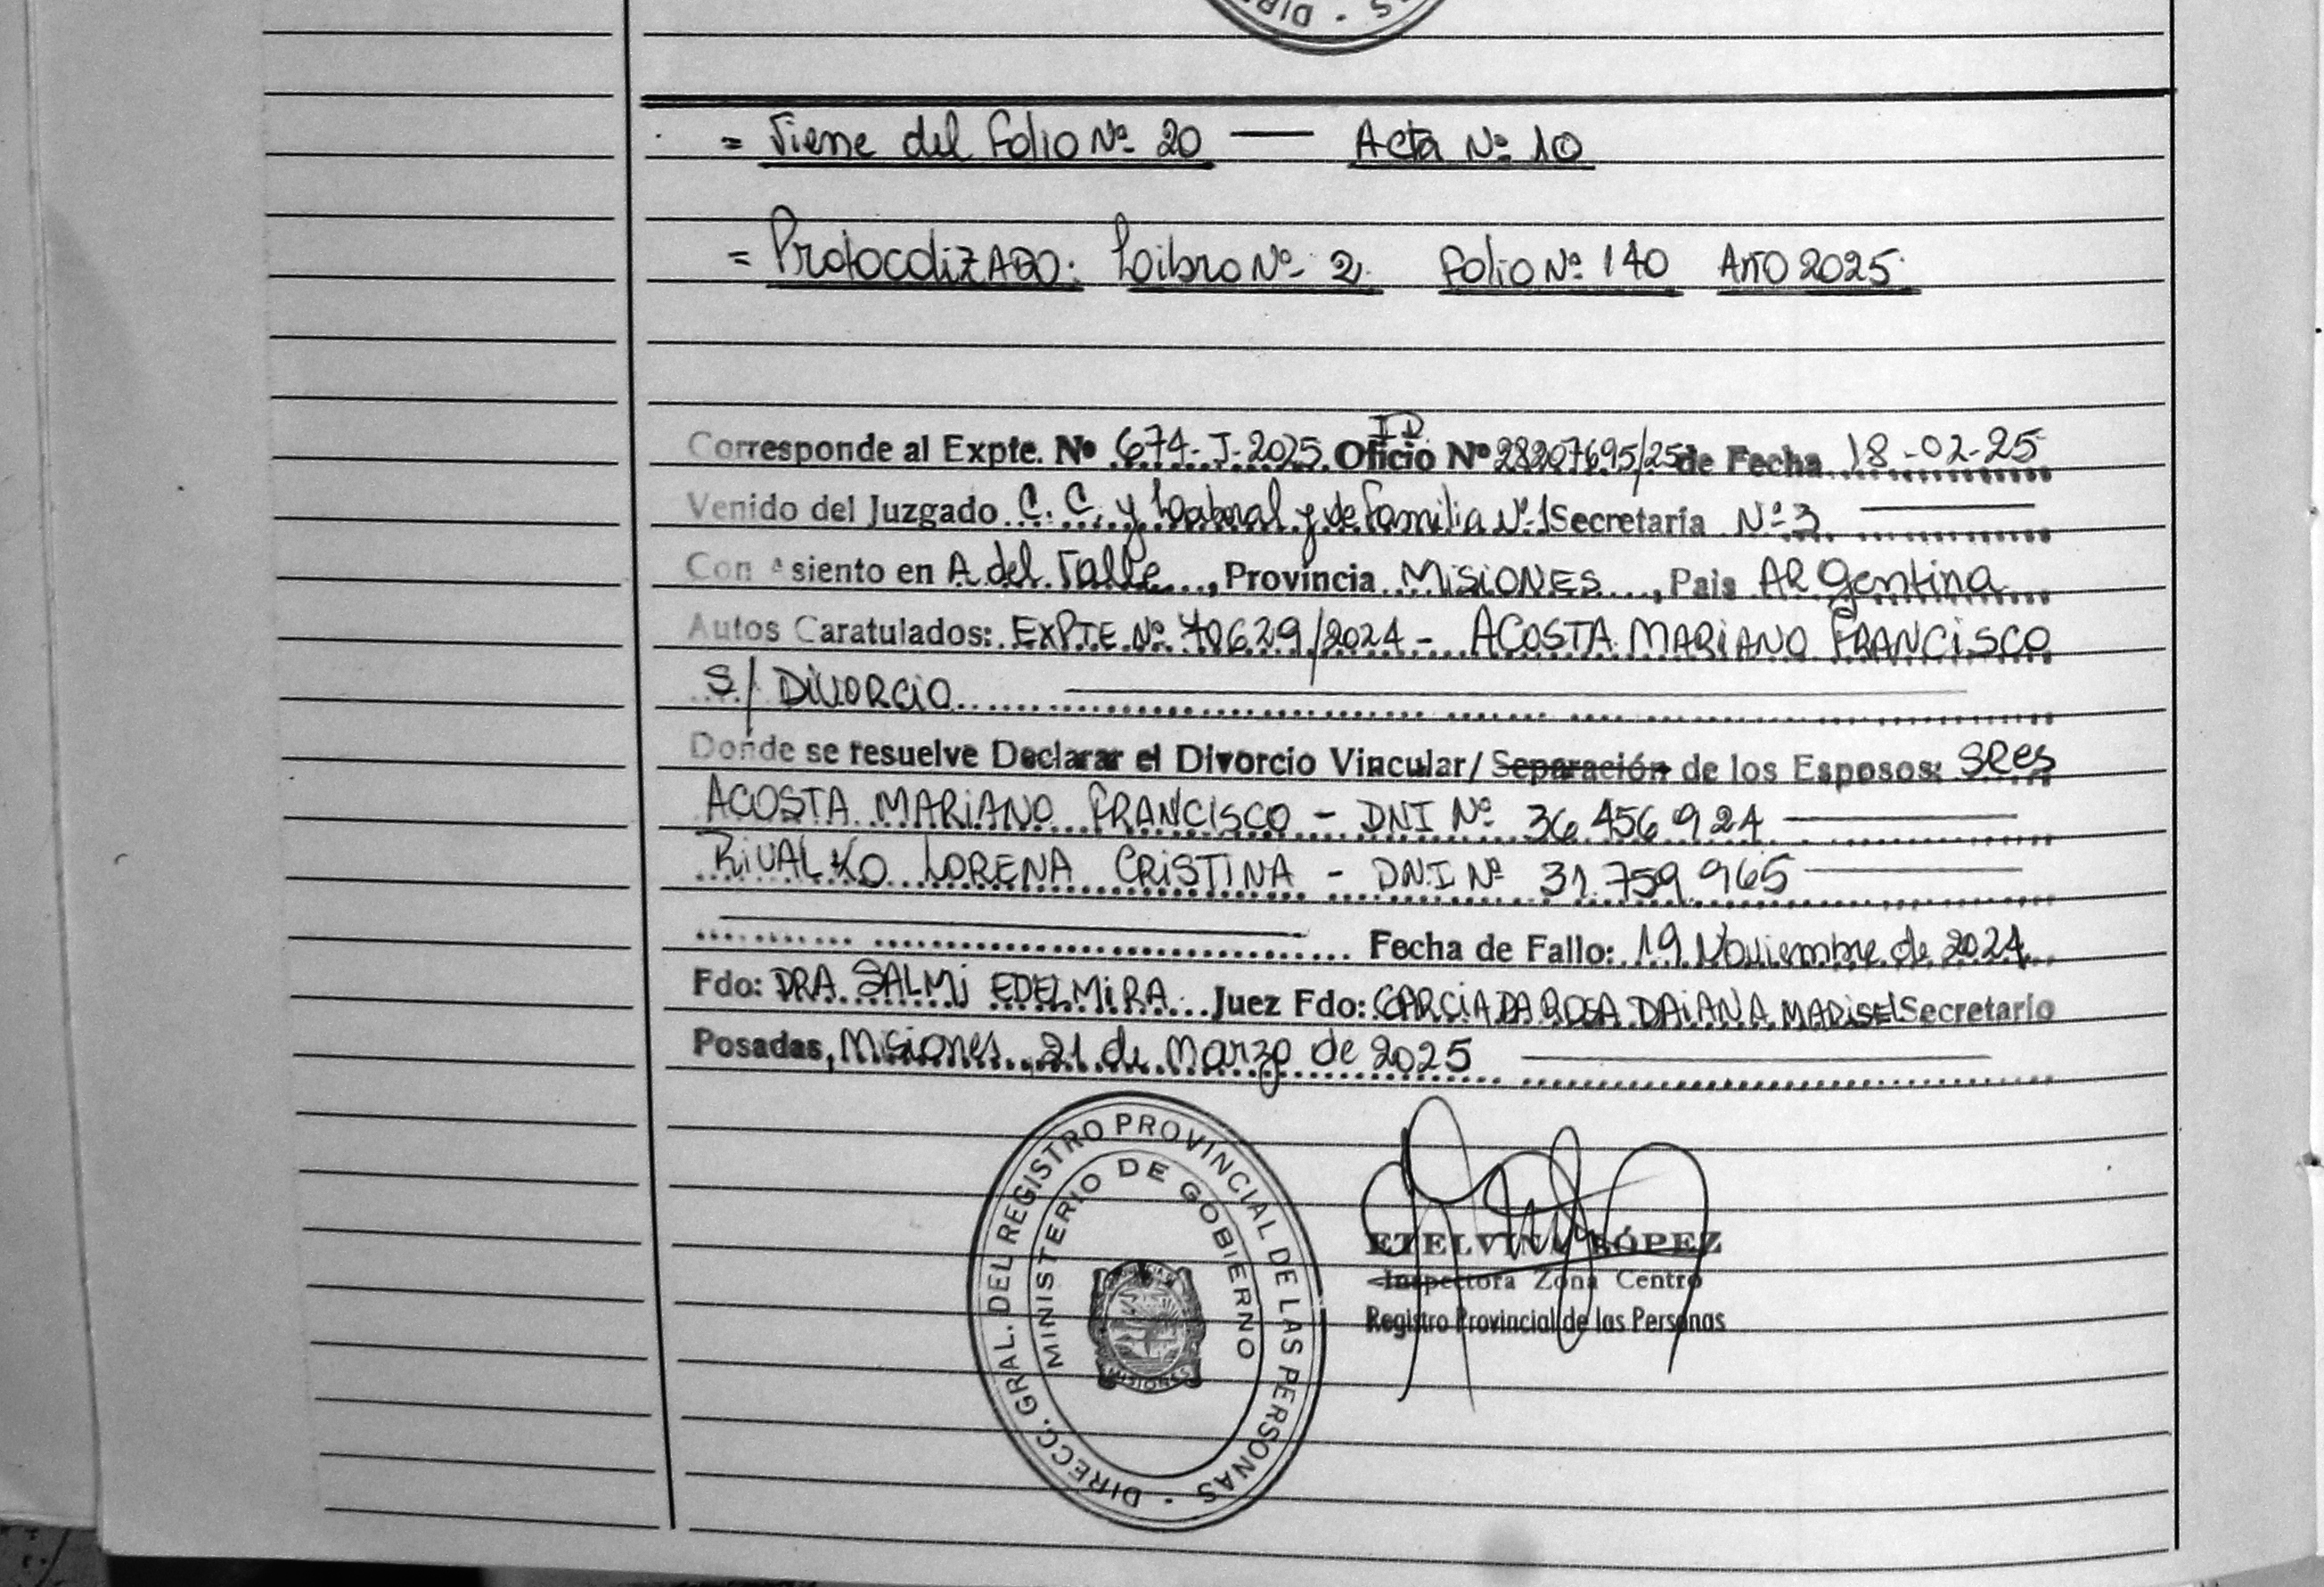 DIR · S
= Viene del folio Nº 20 — Acta Nº 10
= Protocolizado: Libro Nº 2 folio Nº 140 Año 2025
Corresponde al Expte. Nº 674-J-2025 Oficio ID Nº 28207695/25 de Fecha 18-02-25
Venido del Juzgado C.C. y Laboral y de familia Nº 1 Secretaría Nº 3
Con Asiento en A. del Valle, Provincia MISIONES, Pais ARgentina
Autos Caratulados: EXPTE Nº 70629/2024 - ACOSTA MARIANO FRANCISCO
S/ DIVORCIO
Donde se resuelve Declarar el Divorcio Vincular/ Separación de los Esposos: SRes
ACOSTA MARIANO FRANCISCO - DNI Nº 36.456.924
LORENA CRISTINA - DNI Nº 31.759.965
Fecha de Fallo: 19 Noviembre de 2024
Fdo: DRA. SALMI EDELMIRA Juez Fdo: GARCIA DA ROSA DAIANA MARISEL Secretario
Posadas, Misiones, 21 de Marzo de 2025
DIRECC. GRAL. DEL REGISTRO PROVINCIAL DE LAS PERSONAS ·
MINISTERIO DE GOBIERNO
MISIONES
ETELVINA LÓPEZ
Inspectora Zona Centro
Registro Provincial de las Personas